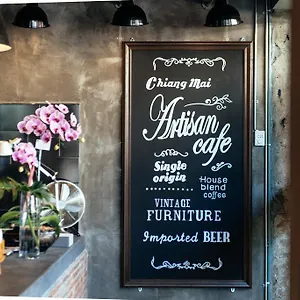 Chiang Mai
Artisan
cafe
Single
origin
House
blend
coffee
VINTAGE
FURNITURE
Imported BEER